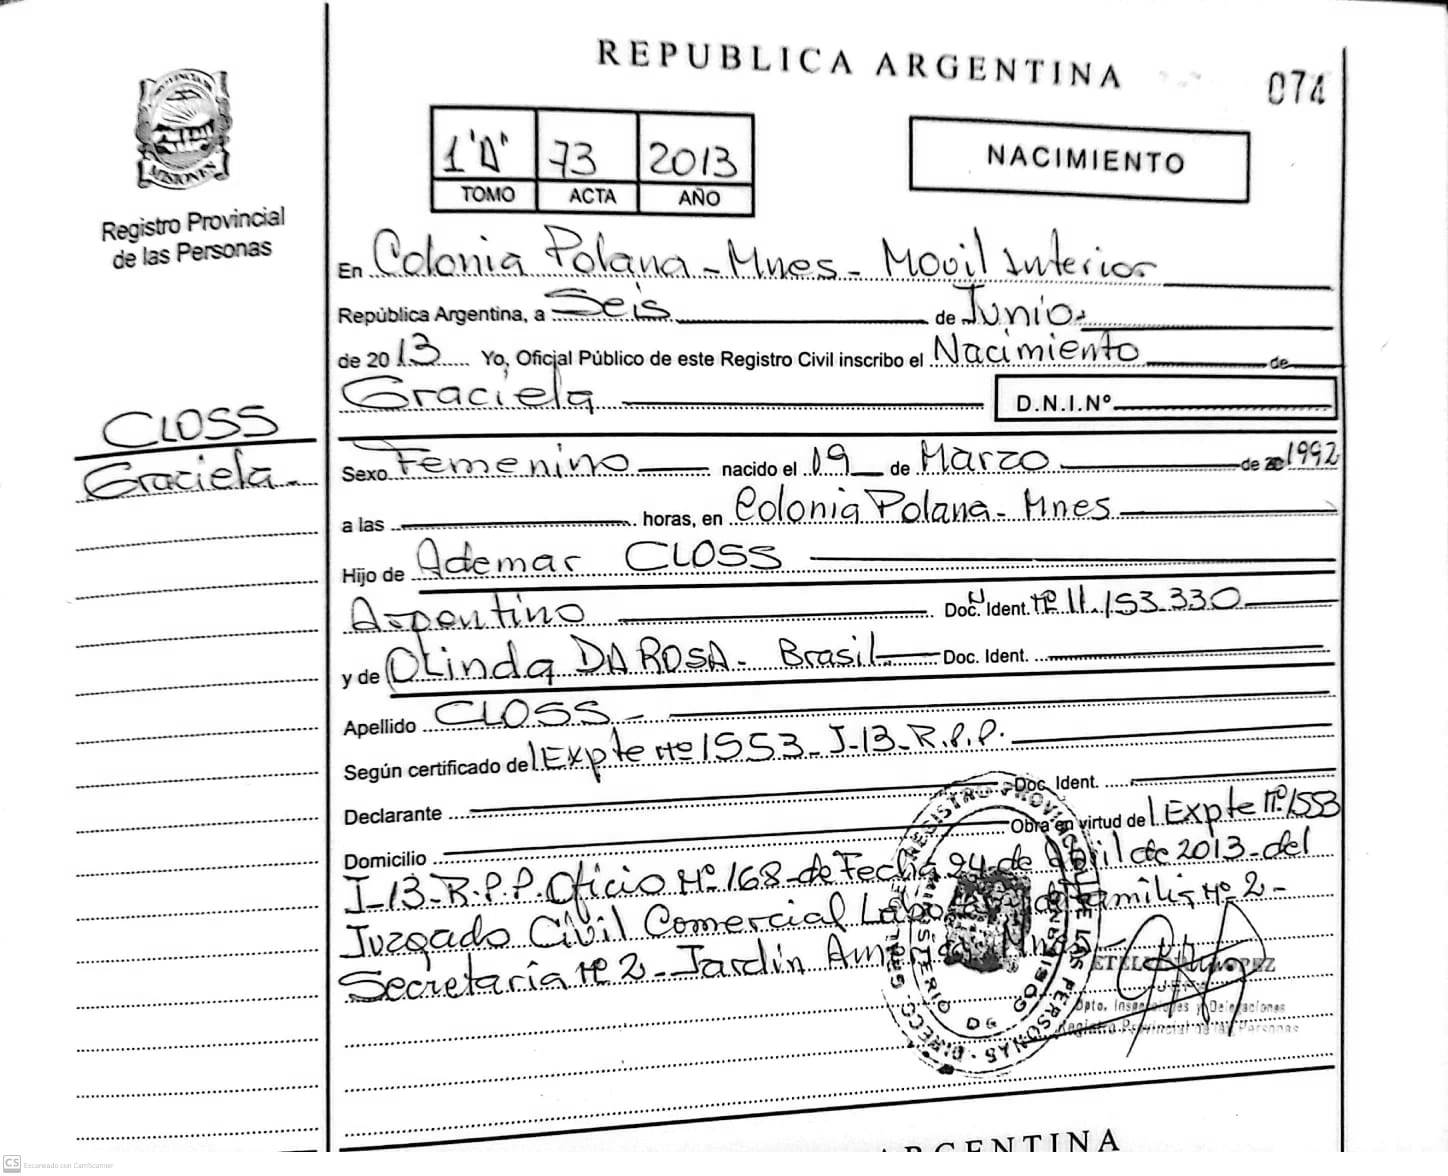 REPUBLICA ARGENTINA
074
PROVINCIA
MISIONES
Registro Provincial
de las Personas
1 "D" 73 2013
TOMO ACTA AÑO
NACIMIENTO
En Colonia Polana - Mnes - Movil Interior
República Argentina, a Seis de Junio
de 2013 Yo, Oficial Público de este Registro Civil inscribo el Nacimiento de
Graciela D.N.I.Nº
CLOSS
Graciela.
Sexo Femenino nacido el 19 de Marzo de 20 1992
a las horas, en Colonia Polana - Mnes
Hijo de Ademar CLOSS
Argentino Doc. Ident. Nº 11.153.330
y de Olinda DA ROSA - Brasil Doc. Ident.
Apellido CLOSS -
Según certificado del Expte Nº 1553 - J-13 - R.P.P.
Declarante Doc. Ident.
Domicilio Obra en virtud del Expte Nº 1553
I-13-R.P.P. Oficio Nº 168 - de Fecha 24 de Abril de 2013 - del
Juzgado Civil Comercial Laboral y de Familia Nº 2 -
Secretaría Nº 2 - Jardín América - Mnes -
REGISTRO PROVINCIAL DE LAS PERSONAS
MINISTERIO DE GOBIERNO
Dpto. Inspecciones y Delegaciones
Registro Provincial de las Personas
ARGENTINA
CS Escaneado con CamScanner